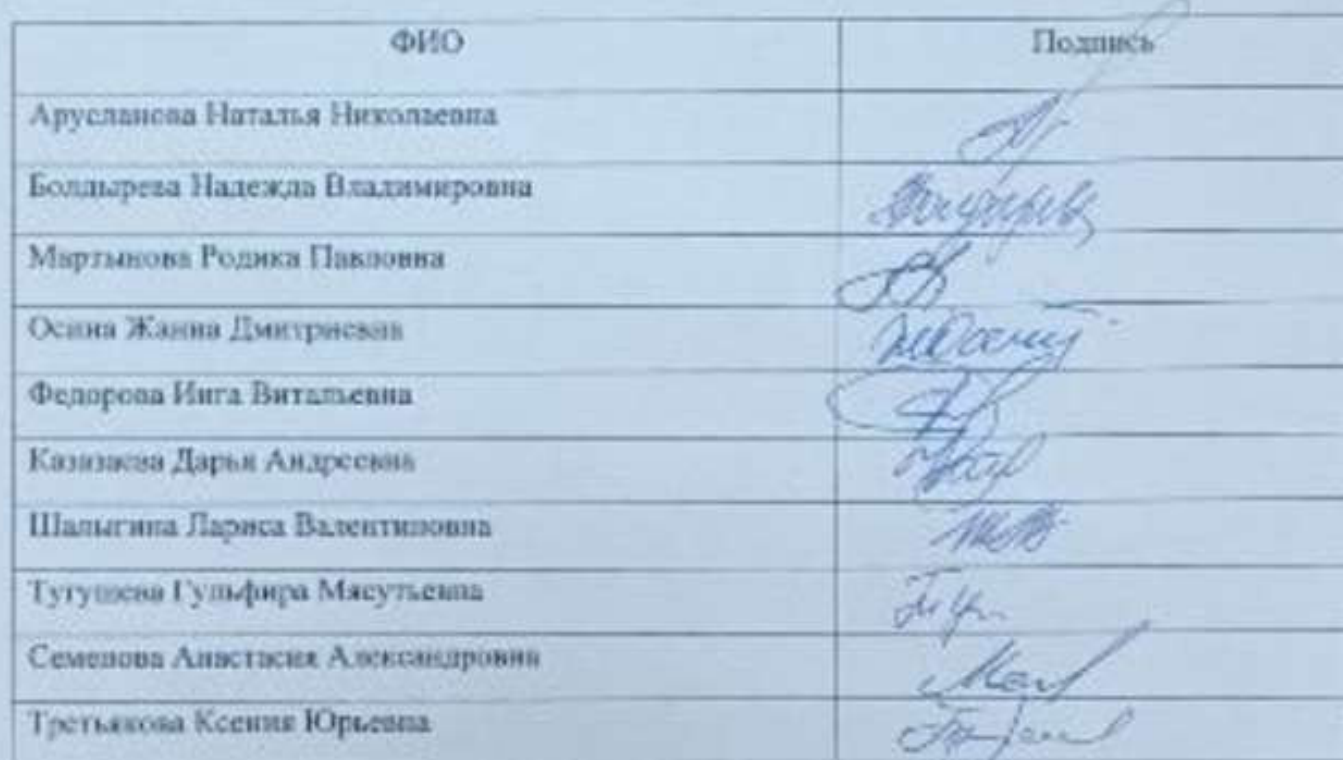 ФИО Подпись
Арусланова Наталья Николаевна
Болдырева Надежда Владимировна
Мартынова Родика Павловна
Осина Жанна Дмитриевна
Федорова Инга Витальевна
Дарья Андреевна
Шалыгина Лариса Валентиновна
Гульфира Мясутьевна
Семенова Анастасия Александровна
Третьякова Ксения Юрьевна